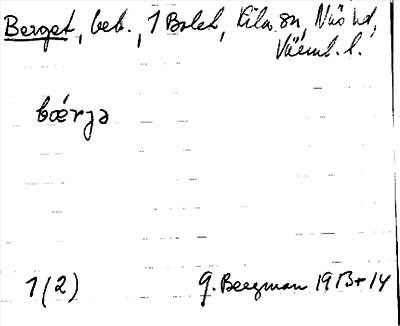 Berget, beb., 1 Bolet, Kila sn, Näs hd,
Värml. l.
bǽrjə
1 (2) G. Bergman 1913+14